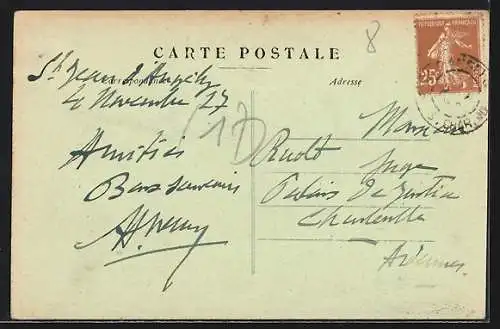 CARTE POSTALE
Correspondance
Adresse
St Jean d'Angély
4 Novembre 27
Amitiés
Bons souvenirs
Monsieur
Ruolt
Juge
Palais de Justice
Charleville
Ardennes
8
17
REPUBLIQUE FRANÇAISE
25c